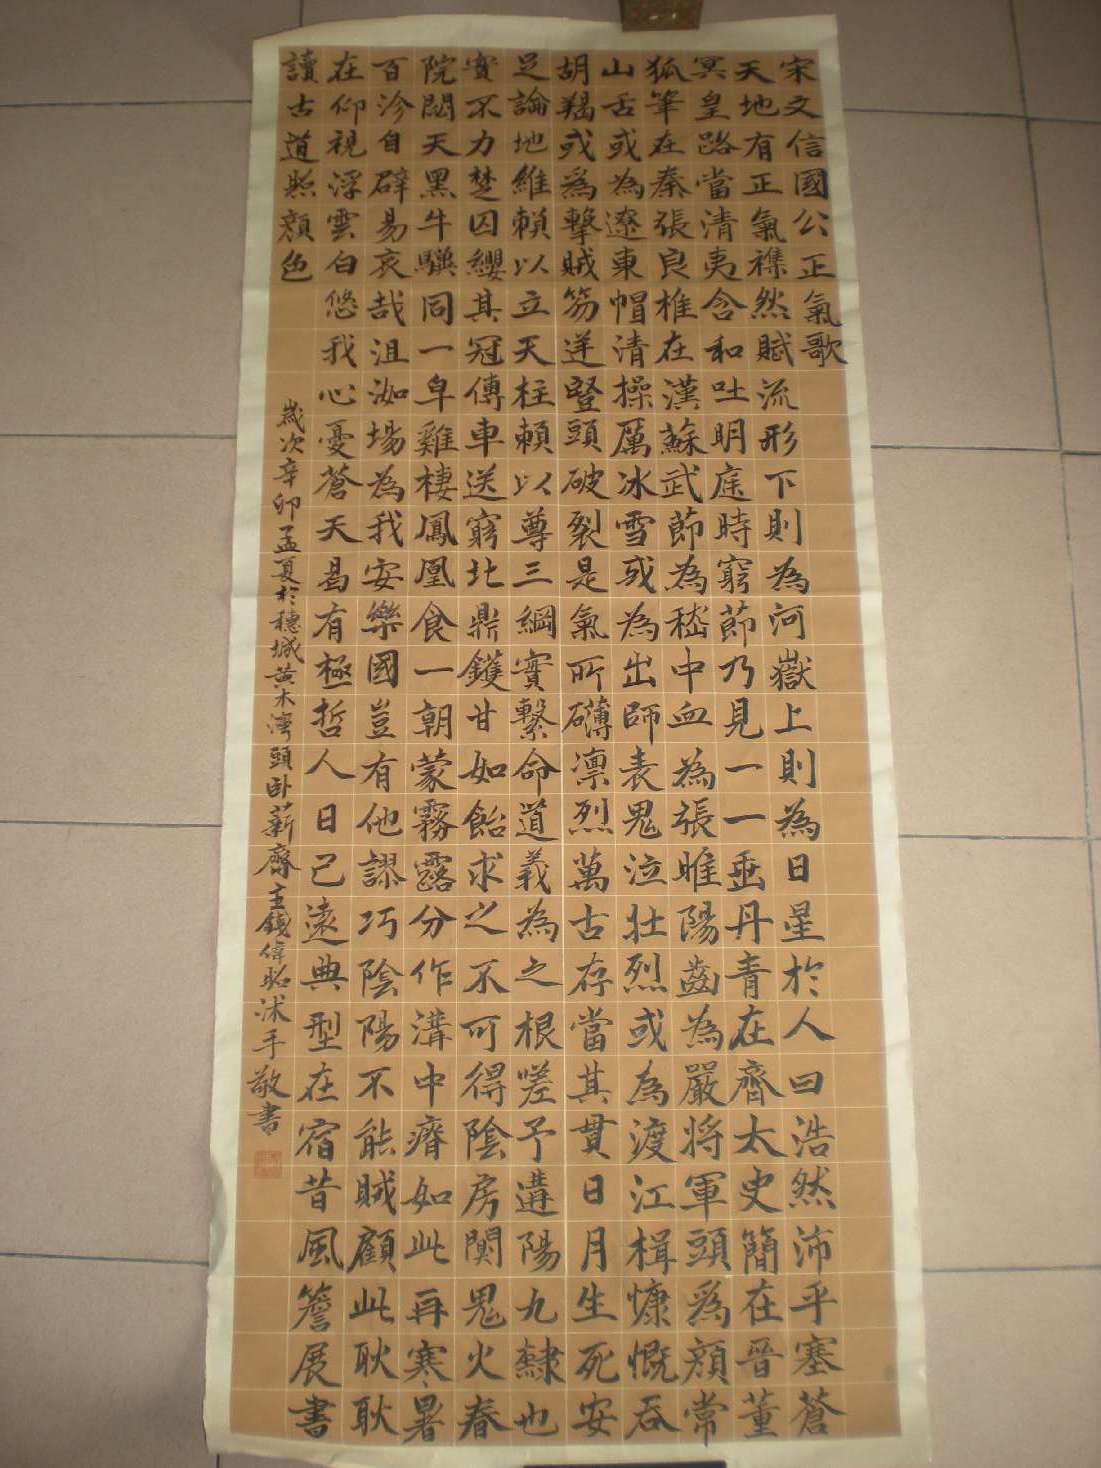 宋文信國公正氣歌
天地有正氣襍然賦流形下則為河嶽上則為日星於人曰浩然沛乎塞蒼
冥皇路當清夷含和吐明庭時窮節乃見一一垂丹青在齊太史簡在晉董
狐筆在秦張良椎在漢蘇武節為嵇中血為張睢陽齒為嚴將軍頭為顏常
山舌或為遼東帽清操厲冰雪或為出師表鬼泣壯烈或為渡江楫慷慨吞
胡羯或為擊賊笏逆豎頭破裂是氣所礴凛烈萬古存當其貫日月生死安
足論地維賴以立天柱賴以尊三綱實繫命道義為之根嗟予遘陽九隸也
實不力楚囚纓其冠傳車送窮北鼎鑊甘如飴求之不可得陰房闃鬼火春
院閟天黑牛驥同一皁雞棲鳳凰食一朝蒙霧露分作溝中瘠如此再寒暑
百沴自辟易哀哉沮洳場為我安樂國豈有他謬巧陰陽不能賊顧此耿耿
在仰視浮雲白悠我心憂蒼天曷有極哲人日已遠典型在宿昔風簷展書
讀古道照顏色
歲次辛卯孟夏於穗城黃木灣頭卧薪齋主錢偉昭沐手敬書